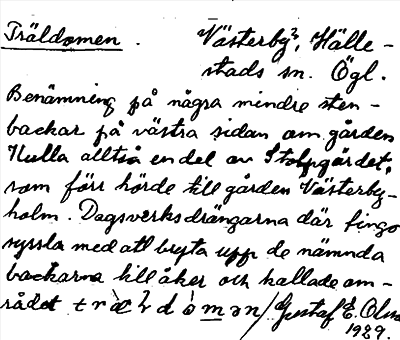 Träldomen. Västerby, Hälle-
stads sn. Ögl.
Benämning på några mindre sten-
backar på västra sidan om gården
Hulla alltså en del av Stolpgärdet,
som förr hörde till gården Västerby-
holm. Dagsverksdrängarna där fingo
syssla med att bryta upp de nämnda
backarna till åker och kallade om-
rådet Gustaf E. Olss
1929.